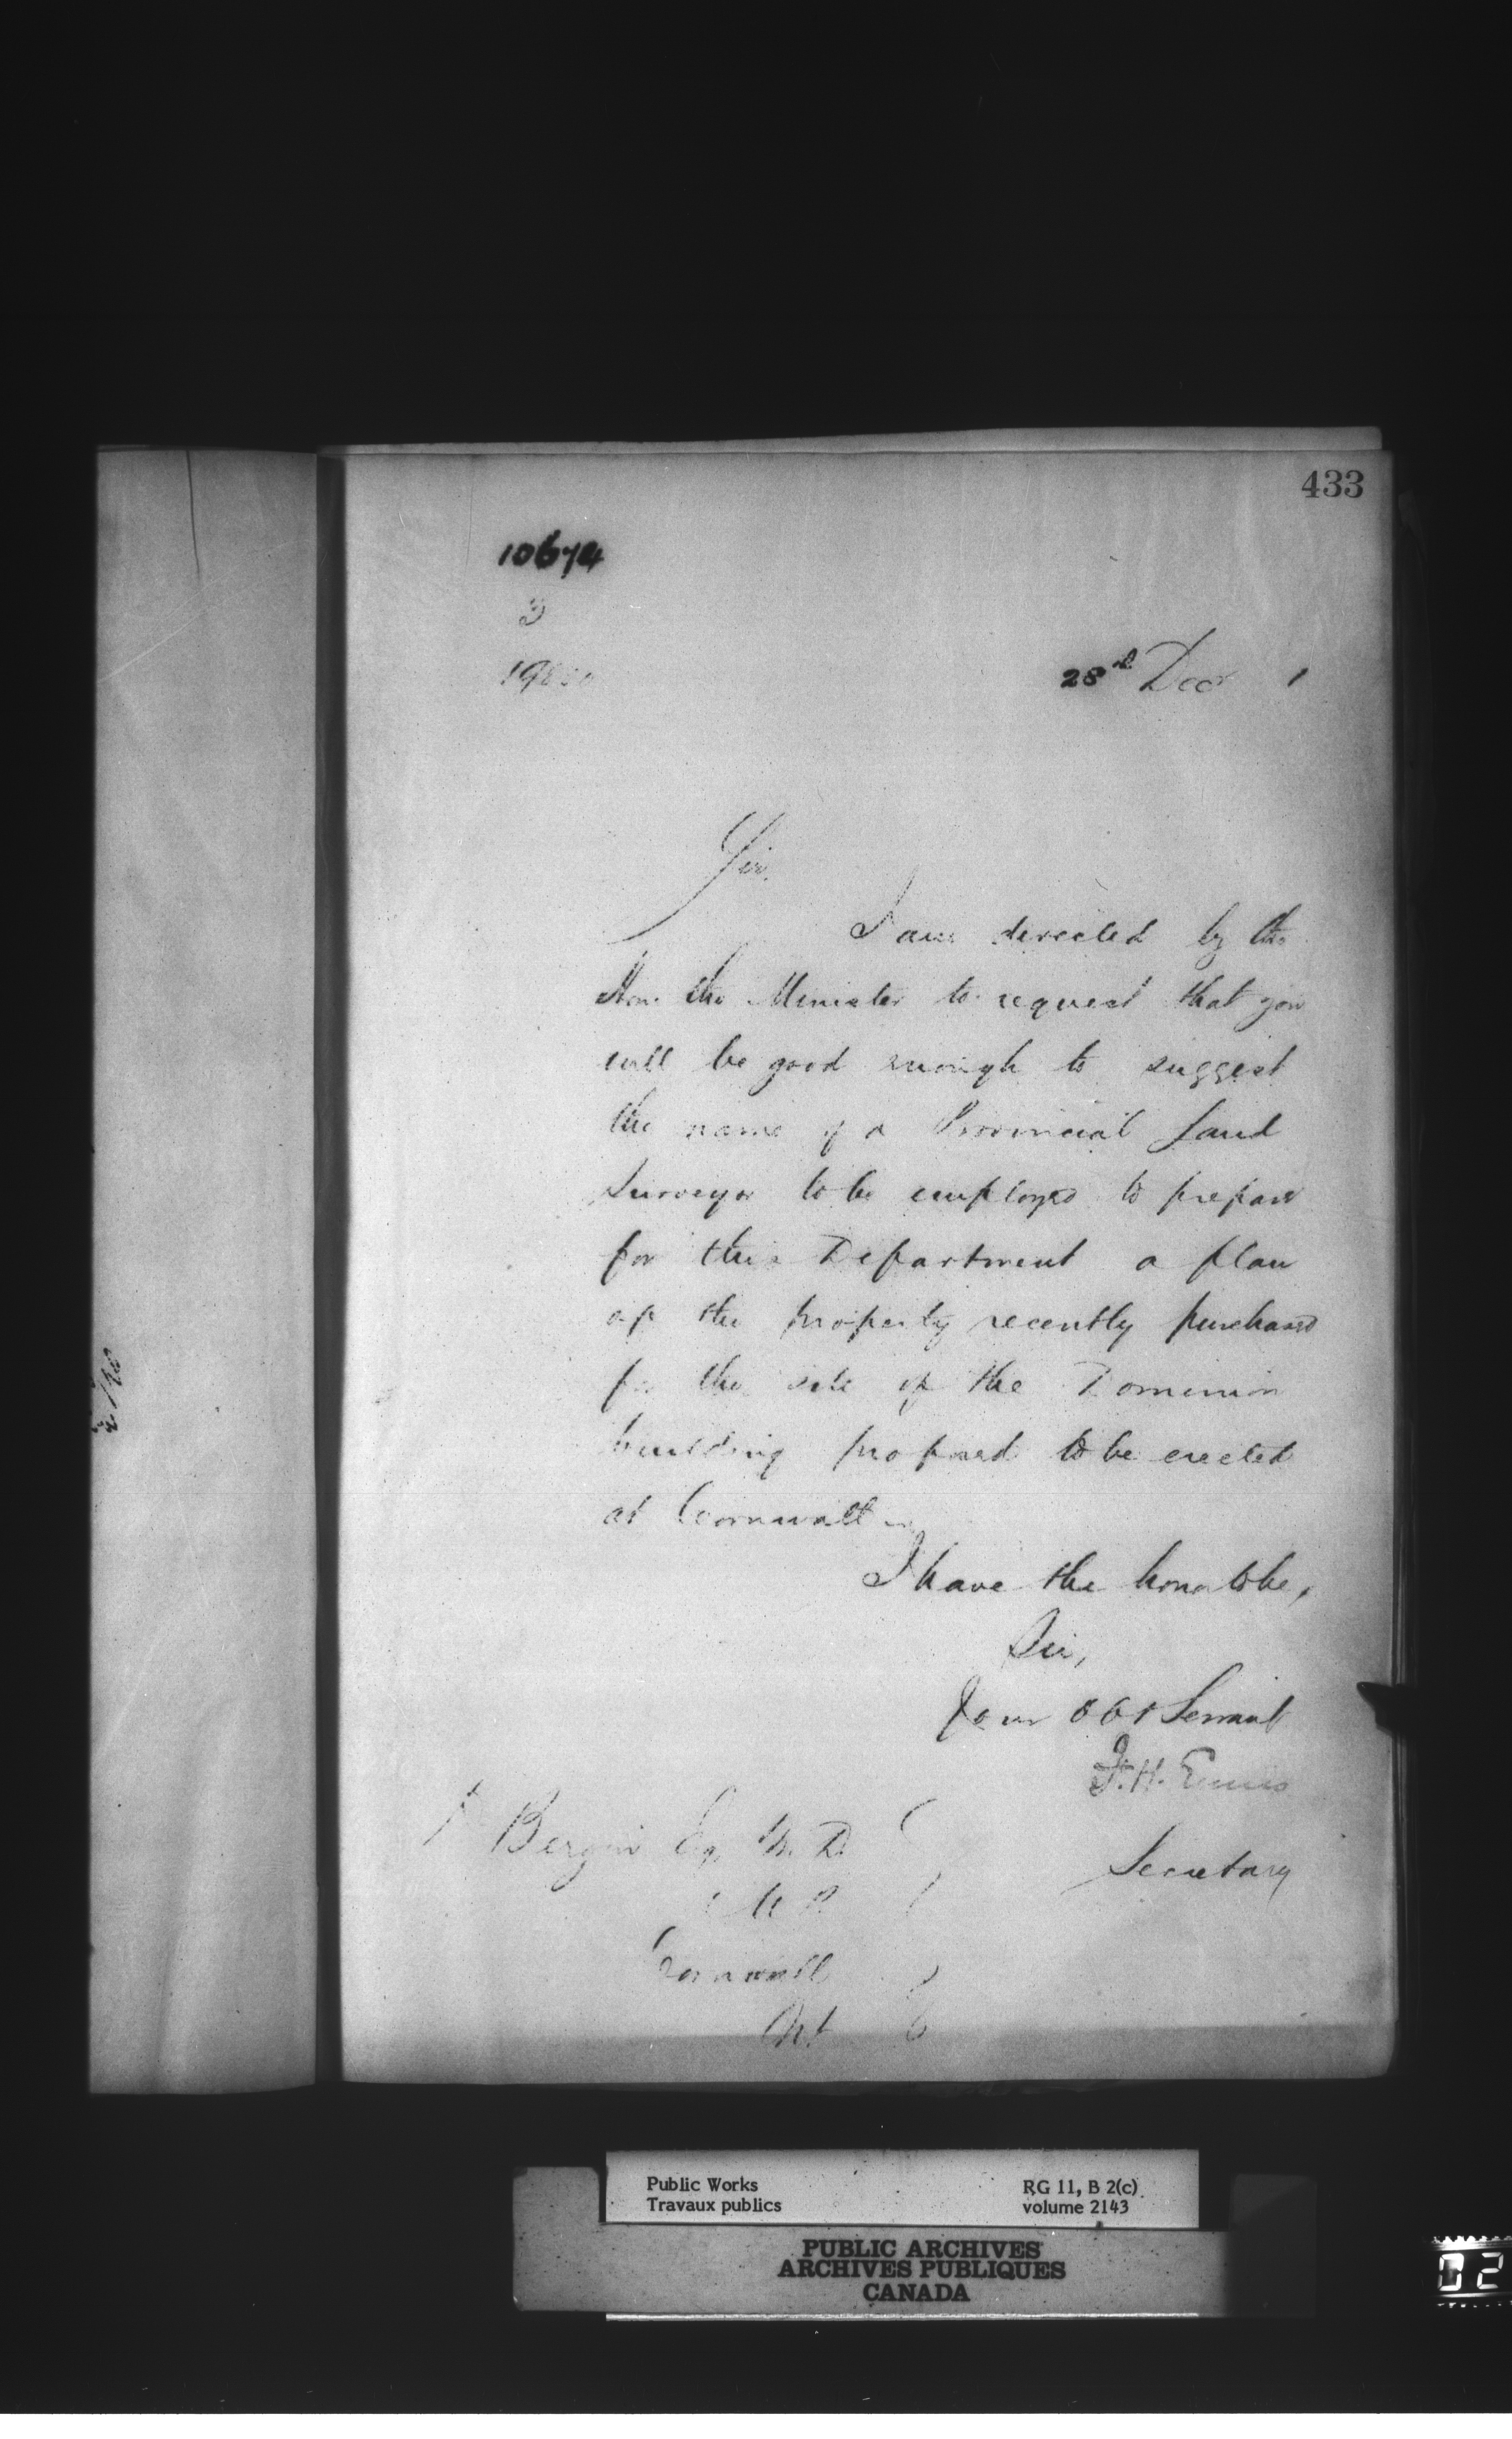 433
10674
3
28th Decr 1
Sir,
I am directed by the
Hon. the Minister to request that you
will be good enough to suggest
the name of a Provincial Land
Surveyor to be employed to prepare
for this Department a plan
of the property recently purchased
for the site of the Dominion
building proposed to be erected
at Cornwall
I have the honor to be,
Sir,
Your Obt Servant
F. H. Ennis
Secretary
Bergin Esq. M. D.
M P.
Cornwall
Ont
Public Works
Travaux publics
RG 11, B 2(c)
volume 2143
PUBLIC ARCHIVES
ARCHIVES PUBLIQUES
CANADA
02